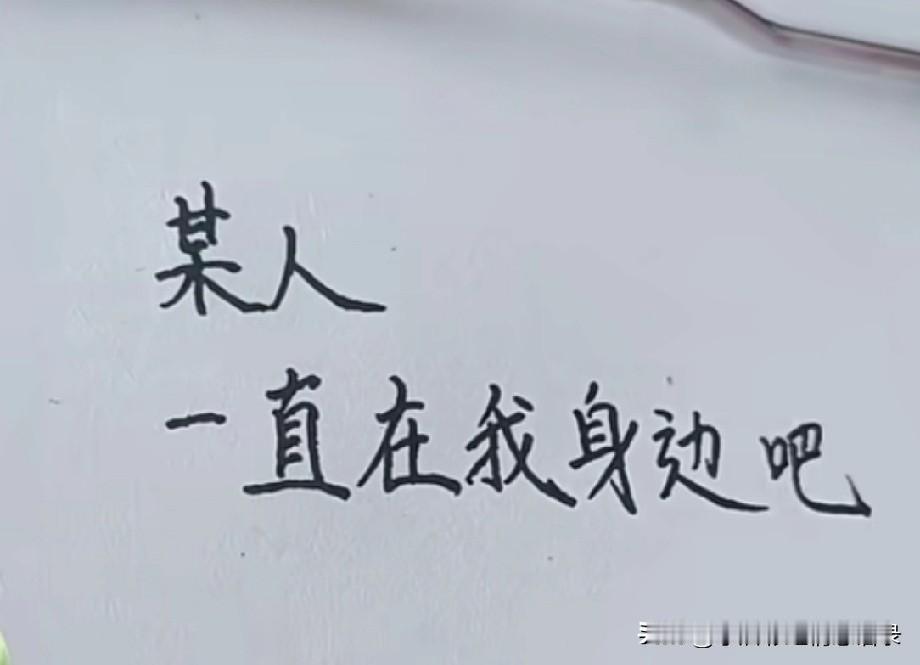 某人
一直在我身边吧